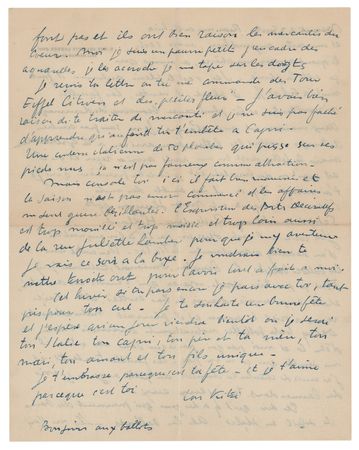 font pas et ils ont bien raison les mercantis du
coeur. Moi je suis un pauvre petit j'encadre des
aquarelles je les accroche je me tape sur les doigts
je reçois ta lettre où tu me commande des Tour
Eiffel citron et des "petites fleurs" - J'avais bien
raison de te traiter de mercanti et je ne suis pas faché
d'apprendre qu'au fond tu t'embête à Capri.
Une contem italienne de 50 planches qui pèse sur ses
pieds nus, ça n'est pas fameux comme attraction.
Mais console toi ici il fait bien mauvais et
la saison n'est pas encore commencé et les affaires
ne sont guère brillantes. L'Exposition des Arts Décoratifs
est trop mouillé et trop moisie et trop loin aussi
de la rue Juliette Lamber pour que je m'y aventure
Je vais ce soir à la boxe. Je voudrais bien te
mettre knock out pour t'avoir tout à fait à moi.
Cet hiver si tu pars encore je pars avec toi, tant
pis pour ton cul. Je te souhaite une bonne fête
et j'espère au revoir viendra bientôt où je serai
ton Italie ton Capri, ton père et ta mère, ton
mari, ton amant et ton fils unique.
Je t'embrasse parce que c'est ta fête - et je t'aime
parce que c'est toi
ton
Bonjour aux ballots